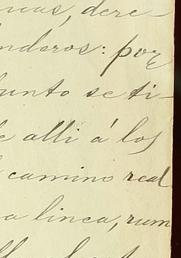 cuas, dere-
nderos: por
unto se ti-
e alli á los
camino real
a linea, rum